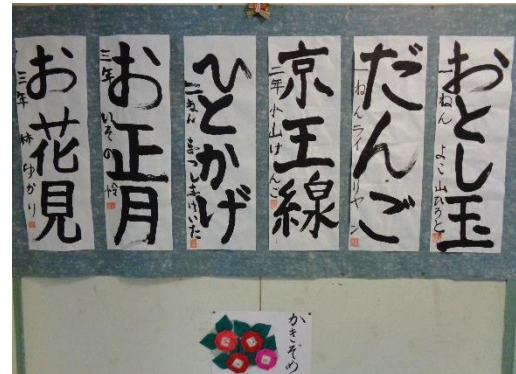 おとし玉
一ねん よこ山ひろと
だんご
一ねん ライ
京王線
二年 小山けんご
ひとかげ
二ねん まつしまけいた
お正月
三年 いその怜
お花見
三年 林ゆかり
かきぞめ